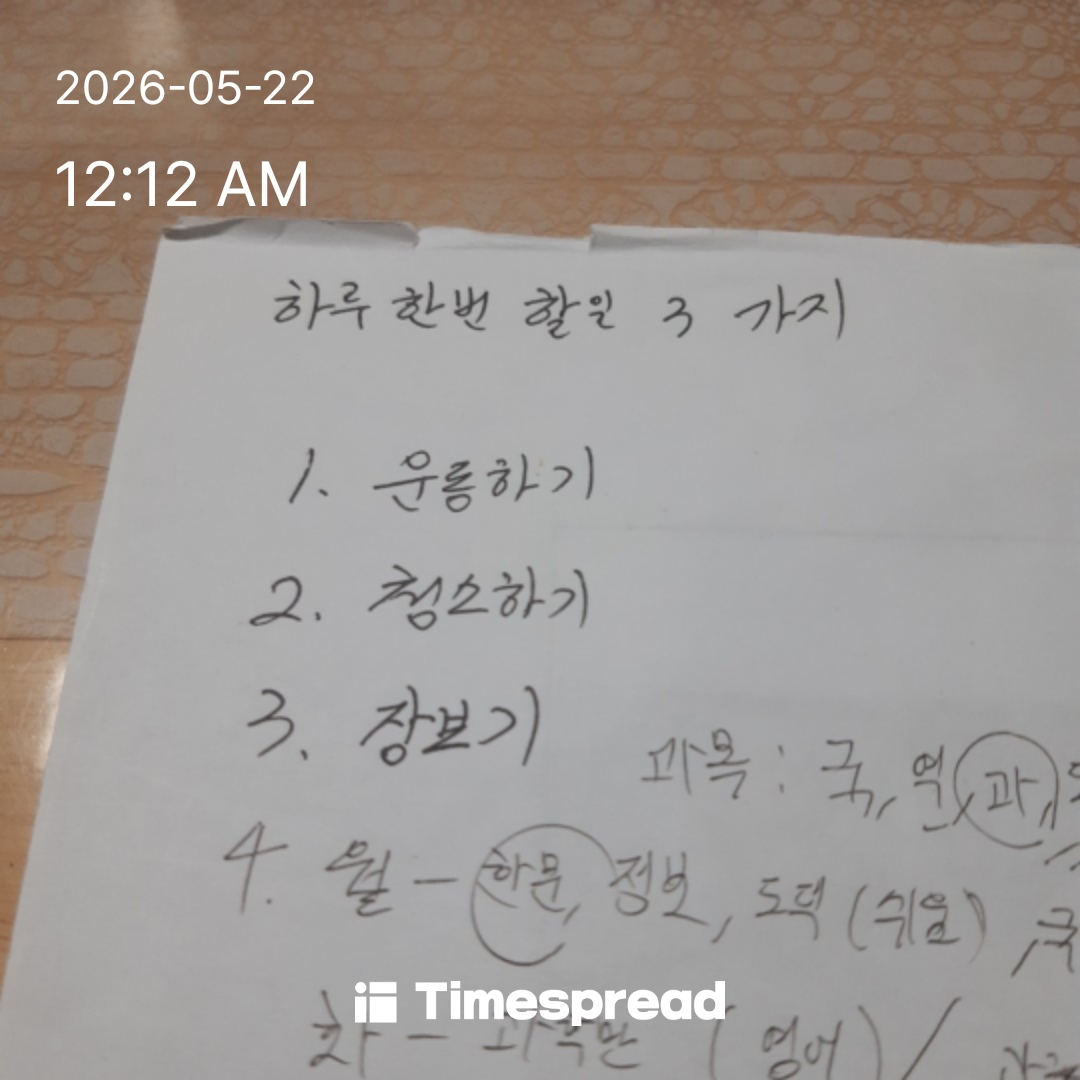 2026-05-22
12:12 AM
하루 한번 할일 3 가지
1. 운동하기
2. 청소하기
3. 장보기
과목 : 국, 역, 과,
4. 월 - 한문, 정보, 도덕 (쉬움)
Timespread
화 - (영어) /